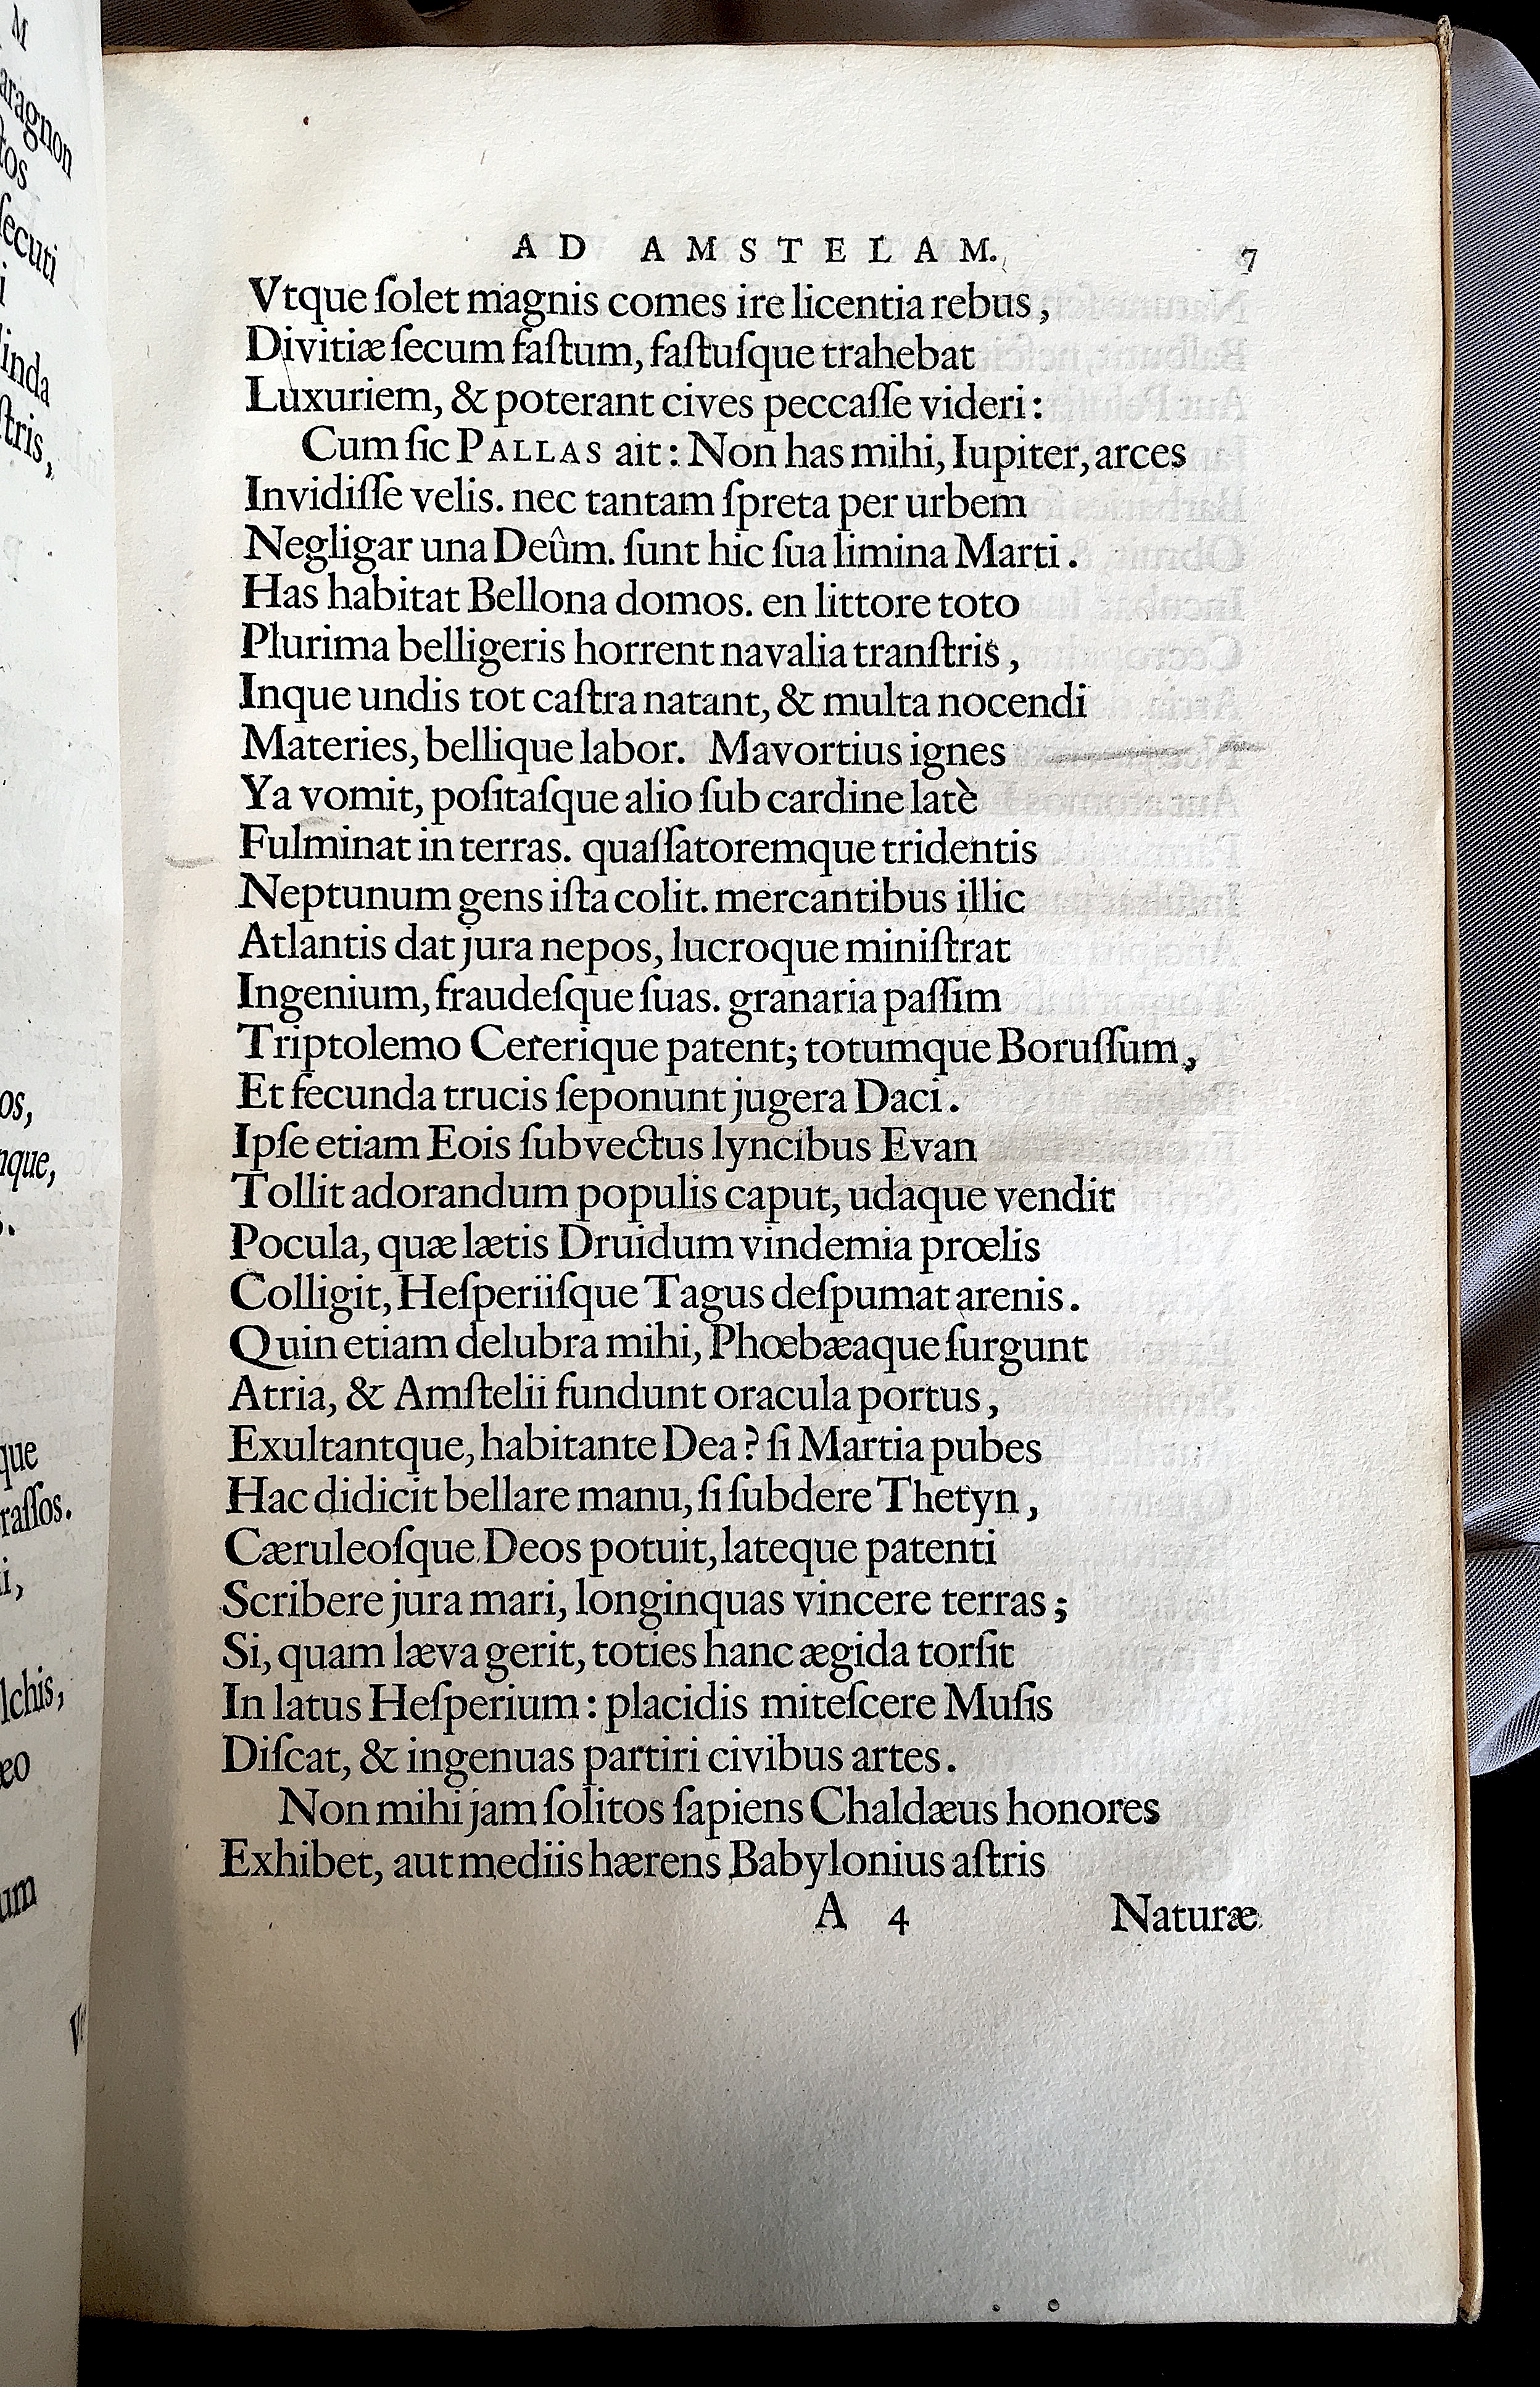 M
aragnon
tos
ſecuti
i
linda
ſtris,
os,
nque,
s.
que
raſſos.
i,
lchis,
æo
um
AD AMSTELAM. 7
Vtque ſolet magnis comes ire licentia rebus,
Divitiæ ſecum faſtum, faſtuſque trahebat
Luxuriem, & poterant cives peccaſſe videri:
Cum ſic PALLAS ait: Non has mihi, Iupiter, arces
Invidiſſe velis. nec tantam ſpreta per urbem
Negligar una Deûm. ſunt hic ſua limina Marti.
Has habitat Bellona domos. en littore toto
Plurima belligeris horrent navalia tranſtris,
Inque undis tot caſtra natant, & multa nocendi
Materies, bellique labor. Mavortius ignes
Ya vomit, poſitaſque alio ſub cardine latè
Fulminat in terras. quaſſatoremque tridentis
Neptunum gens iſta colit. mercantibus illic
Atlantis dat jura nepos, lucroque miniſtrat
Ingenium, fraudeſque ſuas. granaria paſſim
Triptolemo Cererique patent; totumque Boruſſum,
Et fecunda trucis ſeponunt jugera Daci.
Ipſe etiam Eois ſubvectus lyncibus Evan
Tollit adorandum populis caput, udaque vendit
Pocula, quæ lætis Druidum vindemia prœlis
Colligit, Heſperiiſque Tagus deſpumat arenis.
Quin etiam delubra mihi, Phœbæaque ſurgunt
Atria, & Amſtelii fundunt oracula portus,
Exultantque, habitante Dea? ſi Martia pubes
Hac didicit bellare manu, ſi ſubdere Thetyn,
Cæruleoſque Deos potuit, lateque patenti
Scribere jura mari, longinquas vincere terras;
Si, quam læva gerit, toties hanc ægida torſit
In latus Heſperium: placidis miteſcere Muſis
Diſcat, & ingenuas partiri civibus artes.
Non mihi jam ſolitos ſapiens Chaldæus honores
Exhibet, aut mediis hærens Babylonius aſtris
A 4 Naturæ